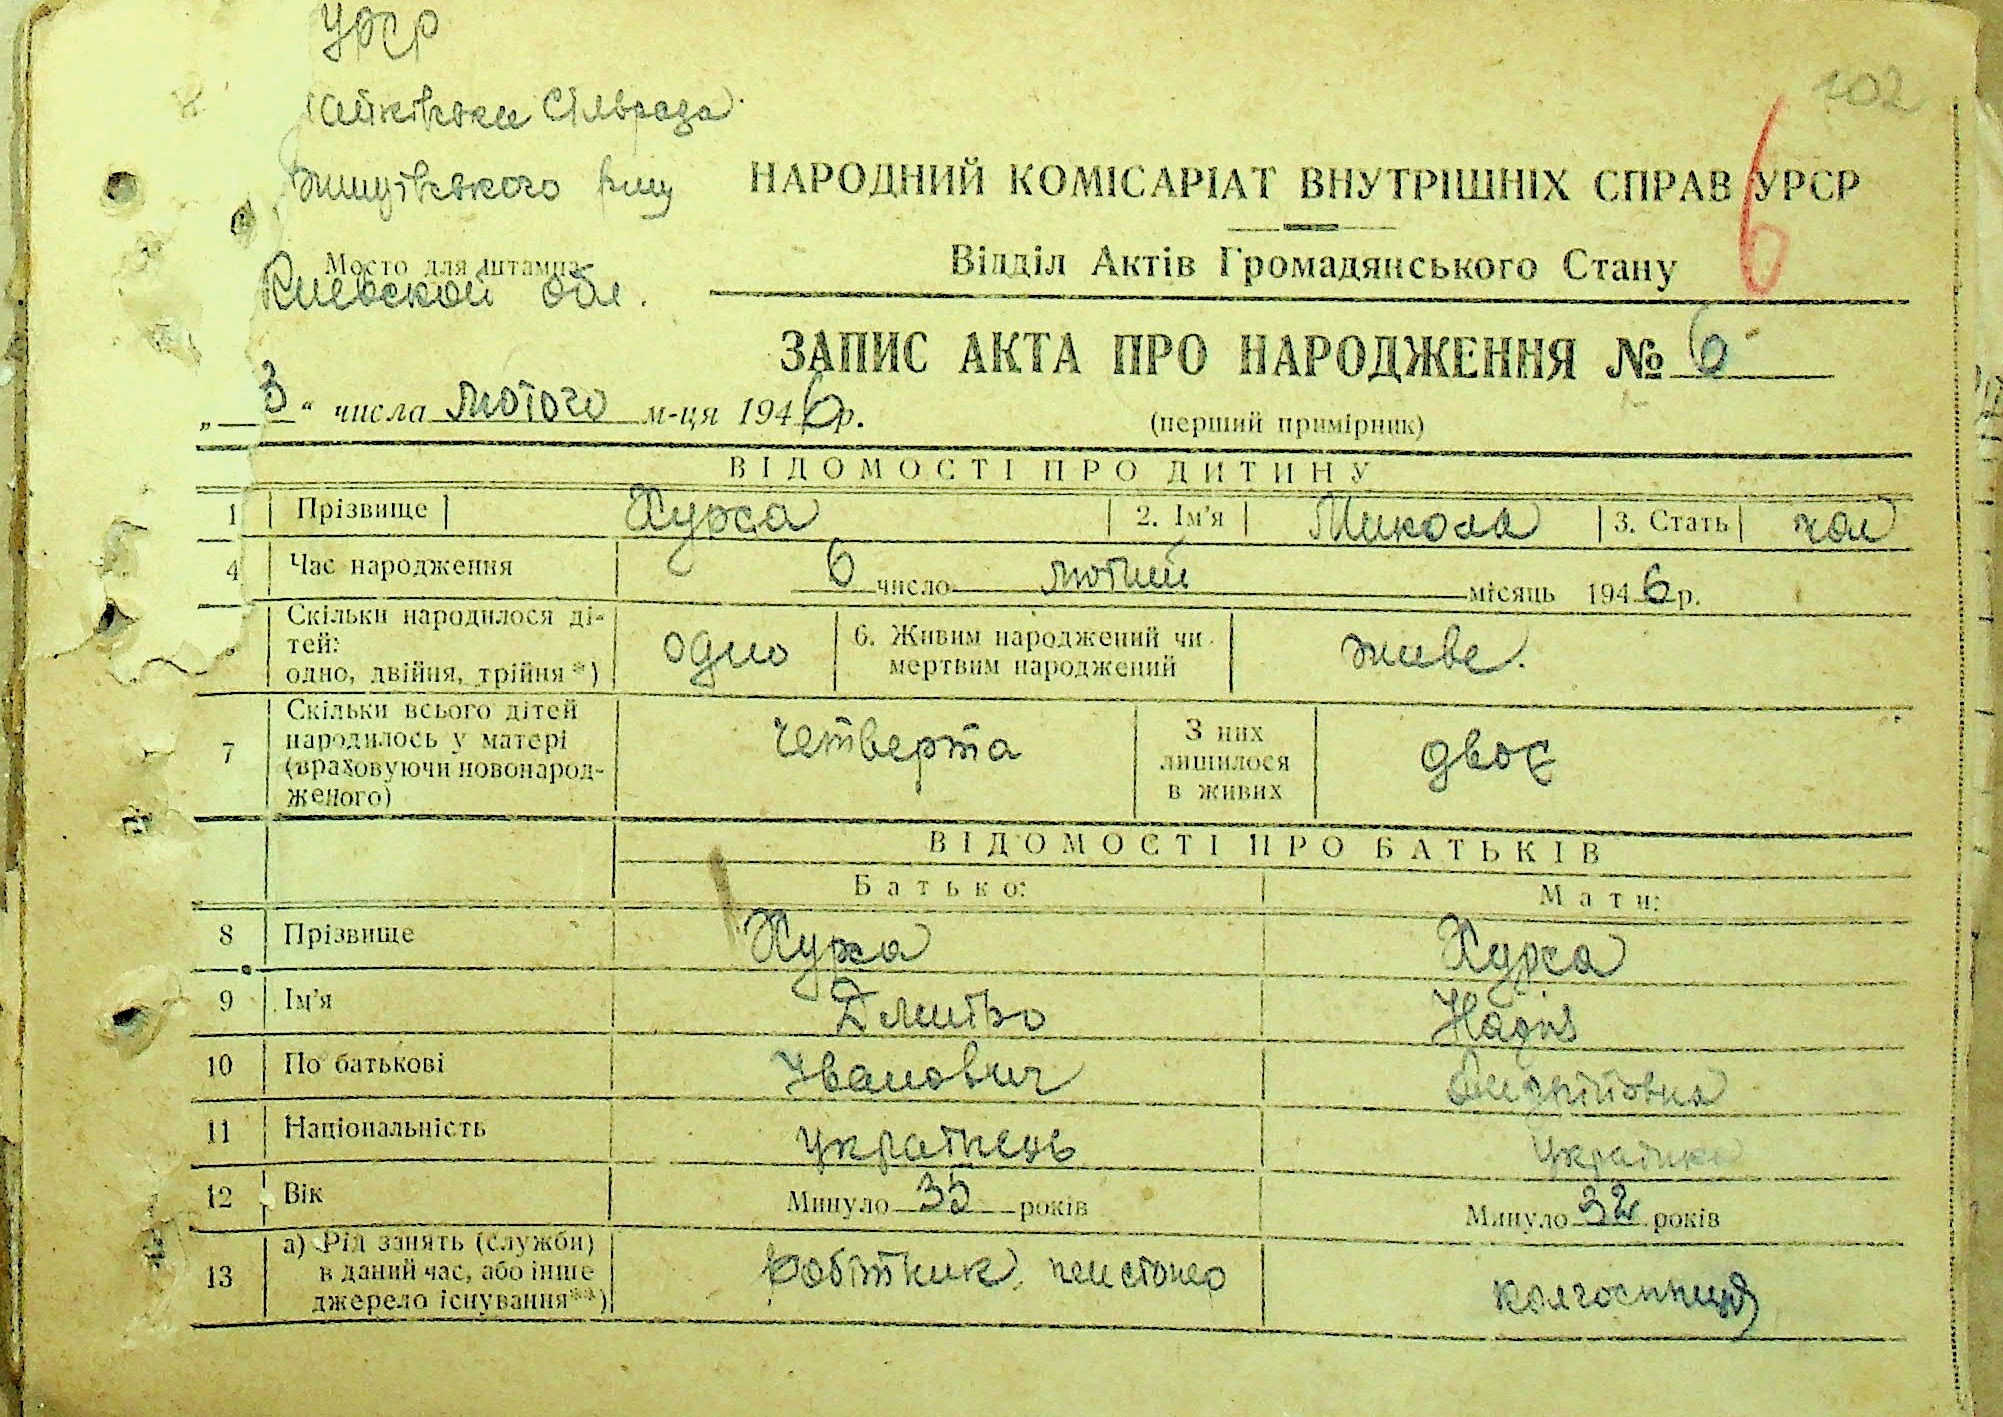 УРСР
Сільрада
102
НАРОДНИЙ КОМІСАРІАТ ВНУТРІШНІХ СПРАВ УРСР
6
Місто для штампа
Киевской обл.
Відділ Актів Громадянського Стану
ЗАПИС АКТА ПРО НАРОДЖЕННЯ № 6
„ 3 “ числа лютого м-ця 1946 р.
(перший примірник)
ВІДОМОСТІ ПРО ДИТИНУ
1 Прізвище Хурса 2. Ім'я Микола 3. Стать чол
4 Час народження 6 число лютий місяць 1946 р.
Скільки народилося ді-
тей:
одно, двійня, трійня*) одно 6. Живим народжений чи
мертвим народжений живе.
7 Скільки всього дітей
народилось у матері
(враховуючи новонарод-
женого) четверта З них
лишилося
в живих двоє
ВІДОМОСТІ ПРО БАТЬКІВ
Батько: Мати:
8 Прізвище Хурса Хурса
9 Ім'я Дмитро Надія
10 По батькові Іванович Андріївна
11 Національність Українець Українка
12 Вік Минуло 35 років Минуло 32 років
13 а) Рід занять (служби)
в даний час, або інше
джерело існування**) робітник колгоспниця